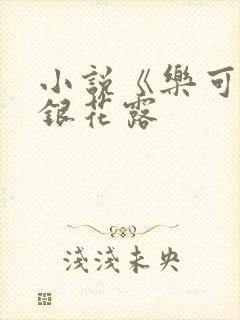 小說《樂可
銀花露
淺淺未央